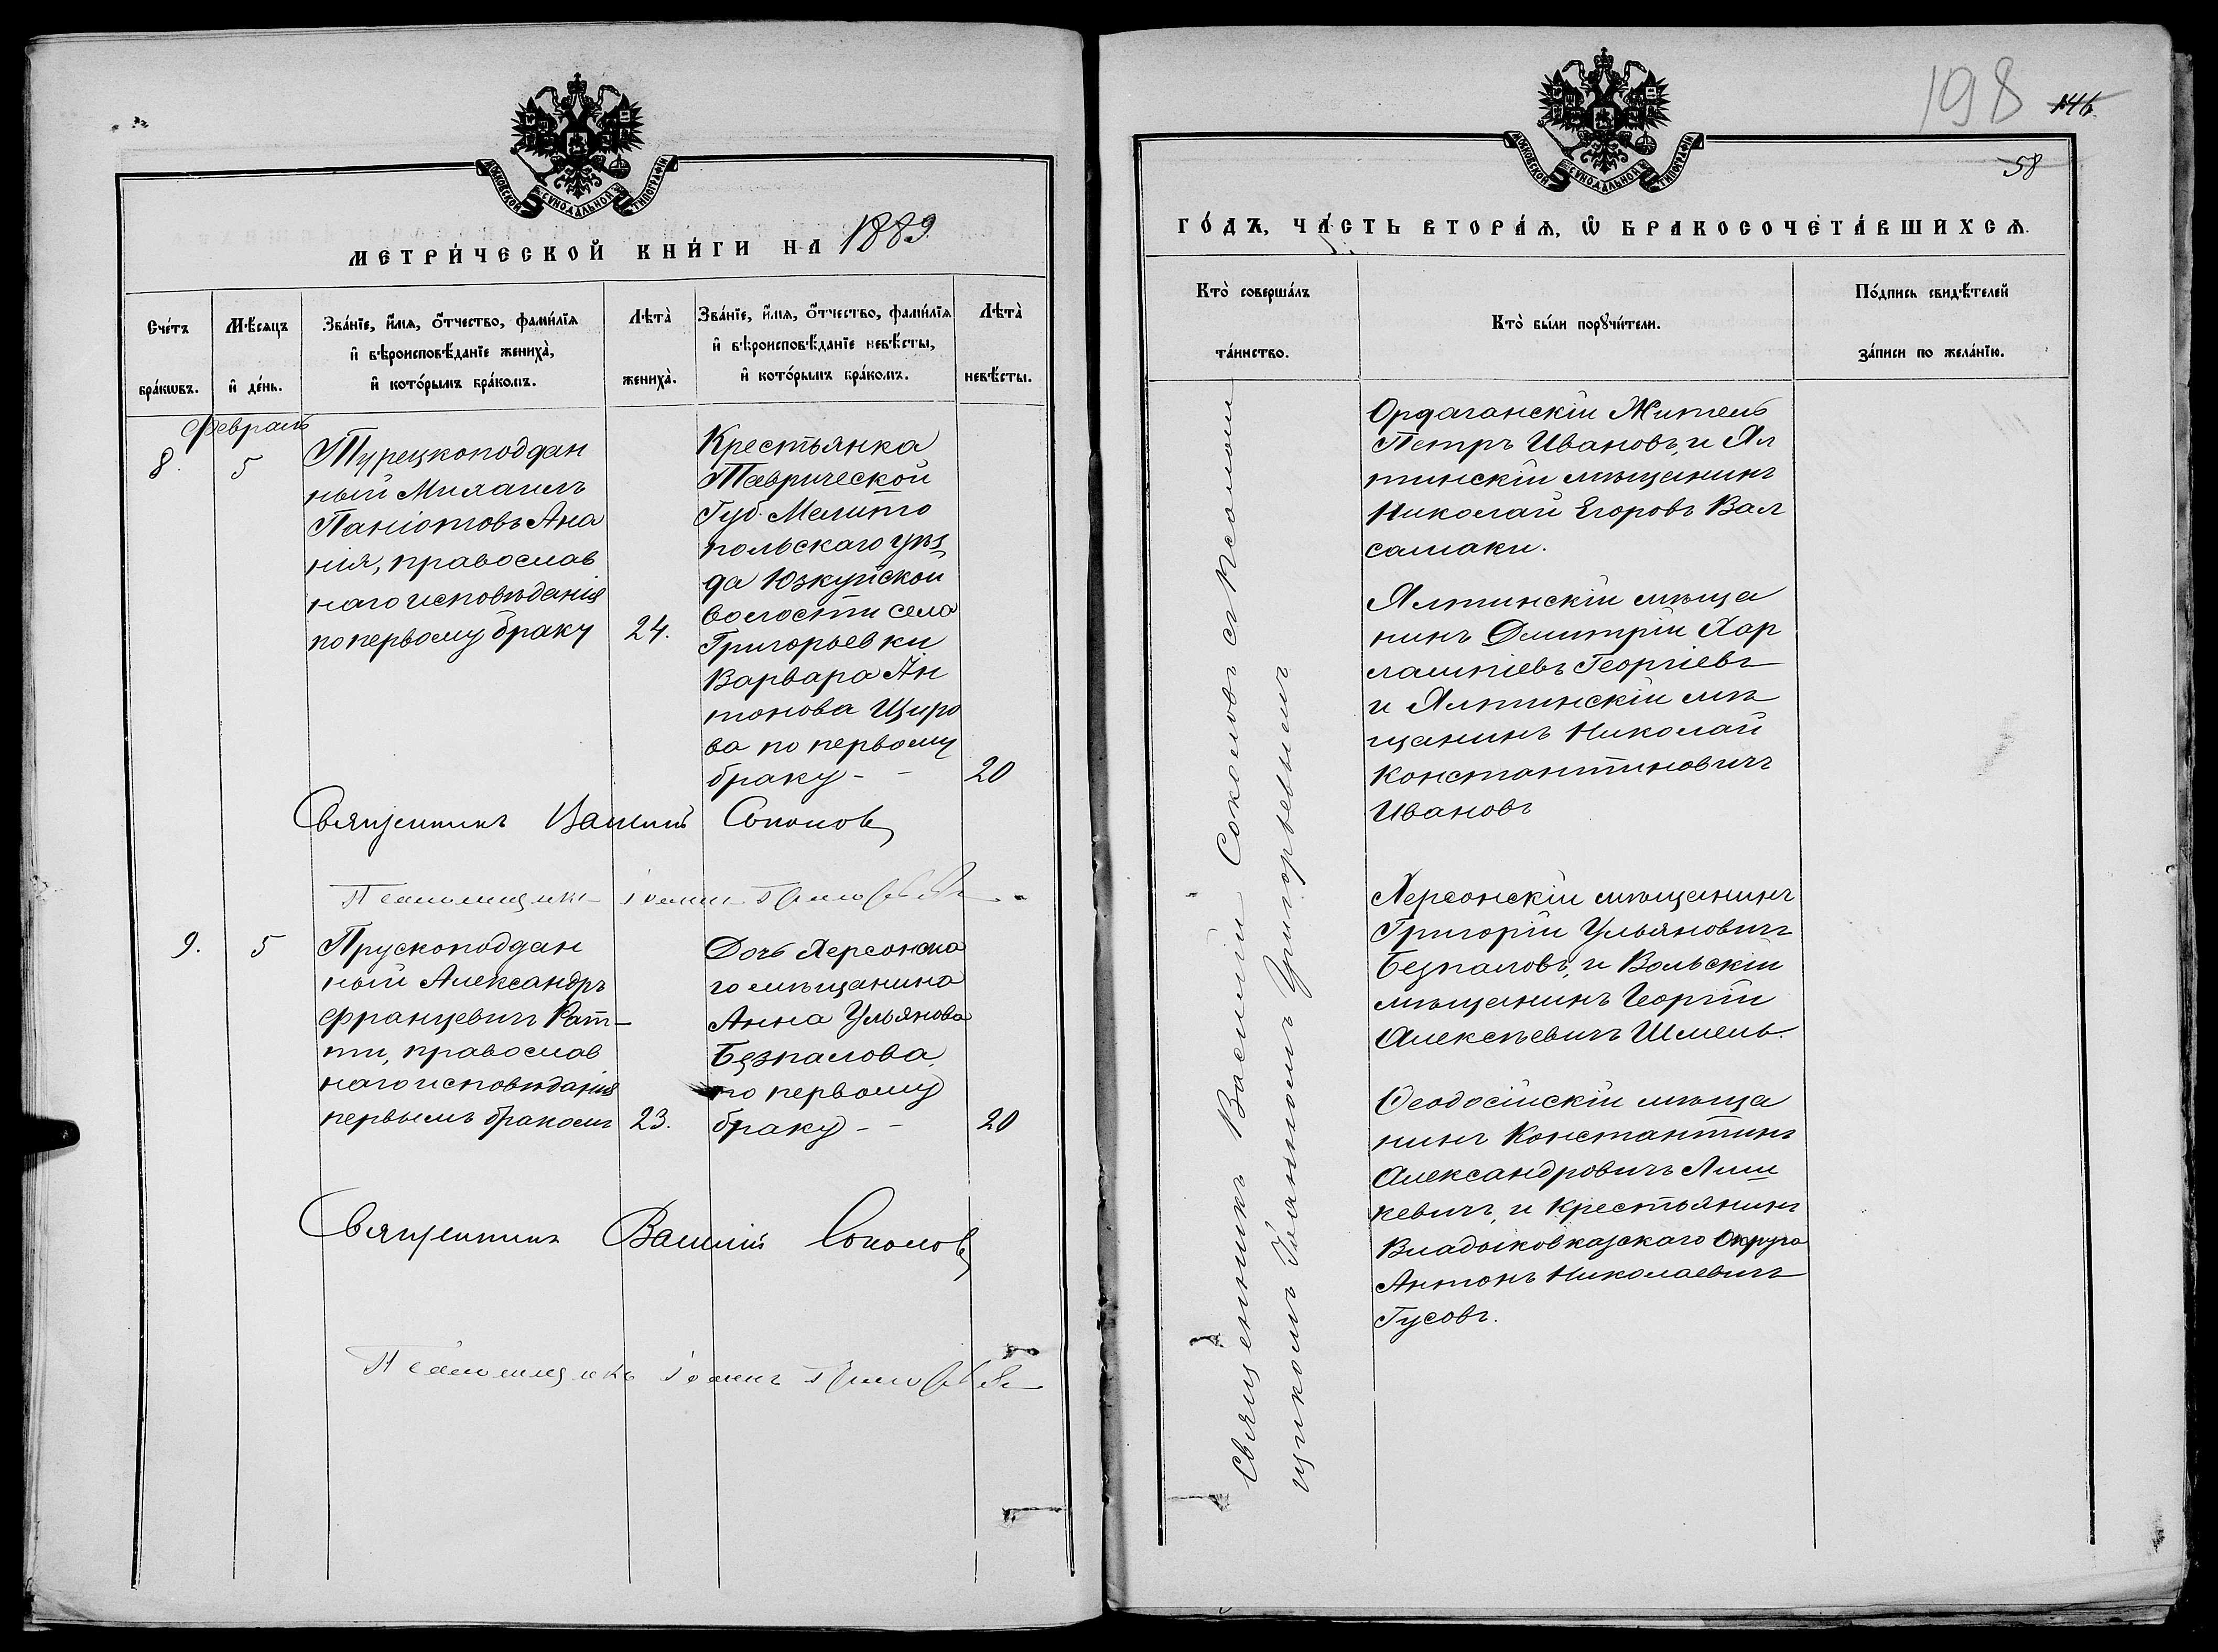 МОСКОВСКОЙ СѴНОДАЛЬНОЙ ТИПОГРАФІИ
МЕТРИ́ЧЕСКОЙ КНИ́ГИ НА 1889
Сче́тъ бра́кѡвъ.
Мѣ́сяцъ и҆ де́нь.
Зва́нїе, и҆́мѧ, ѻ҆́тчество, фами́лїѧ
и҆ вѣроисповѣ́данїе жениха̀,
и҆ кото́рымъ бра́комъ.
Лѣта̀
жениха̀.
Зва́нїе, и҆́мѧ, ѻ҆́тчество, фами́лїѧ
и҆ вѣроисповѣ́данїе невѣ́сты,
и҆ кото́рымъ бра́комъ.
Лѣта̀
невѣ́сты.
Февраль
8. 5
Турецкоподдан
ный Михаилъ
Паніотовъ Ана
нія, православ
наго исповѣданія
по первому браку 24.
Крестьянка
Таврической
Губ. Мелито
польскаго уѣз
да Юзкуйской
волости села
Григорьевки
Варвара Ан
тонова Щиро
ва по первому
браку - - 20
Священникъ Василій Соколовъ
Псаломщикъ Іоаннъ Григорьевъ
9. 5
Прускоподдан
ный Александръ
Францевичъ Рат-
ти, православ
наго исповѣданія
первымъ бракомъ 23.
Дочь Херсонска
го мѣщанина
Анна Ульянова
Безпалова,
по первому
браку - - 20
Священникъ Василій Соколовъ
Псаломщикъ Іоаннъ Григорьевъ
198 146
58
МОСКОВСКОЙ СѴНОДАЛЬНОЙ ТИПОГРАФІИ
ГО́ДЪ, ЧА́СТЬ ВТОРА́Ѧ, Ѡ҆ БРАКОСОЧЕТА́ВШИХСѦ.
Кто̀ соверша́лъ
та́инство.
Кто̀ бы́ли порꙋчи́тели.
По́дпись свидѣ́телей
за́писи по жела́нїю.
Священникъ Василій Соколовъ съ Псалом
щикомъ Іоанномъ Григорьевымъ
Ордаганскій Житель
Петръ Ивановъ, и Ял
тинскій мѣщанинъ
Николай Егоровъ Вал
самаки.
Ялтинскій мѣща
нинъ Дмитрій Хар
лампіевъ Георгіевъ
и Ялтинскій мѣ
щанинъ Николай
Константиновичъ
Ивановъ
Херсонскій мѣщанинъ
Григорій Ульяновичъ
Безпаловъ, и Вольскій
мѣщанинъ Георгій
Алексѣевичъ Шмель.
Ѳеодосійскій мѣща
нинъ Константинъ
Александровичъ Лиш
кевичъ, и крестьянинъ
Владыковказскаго Округа
Антонъ Николаевичъ
Гусовъ.